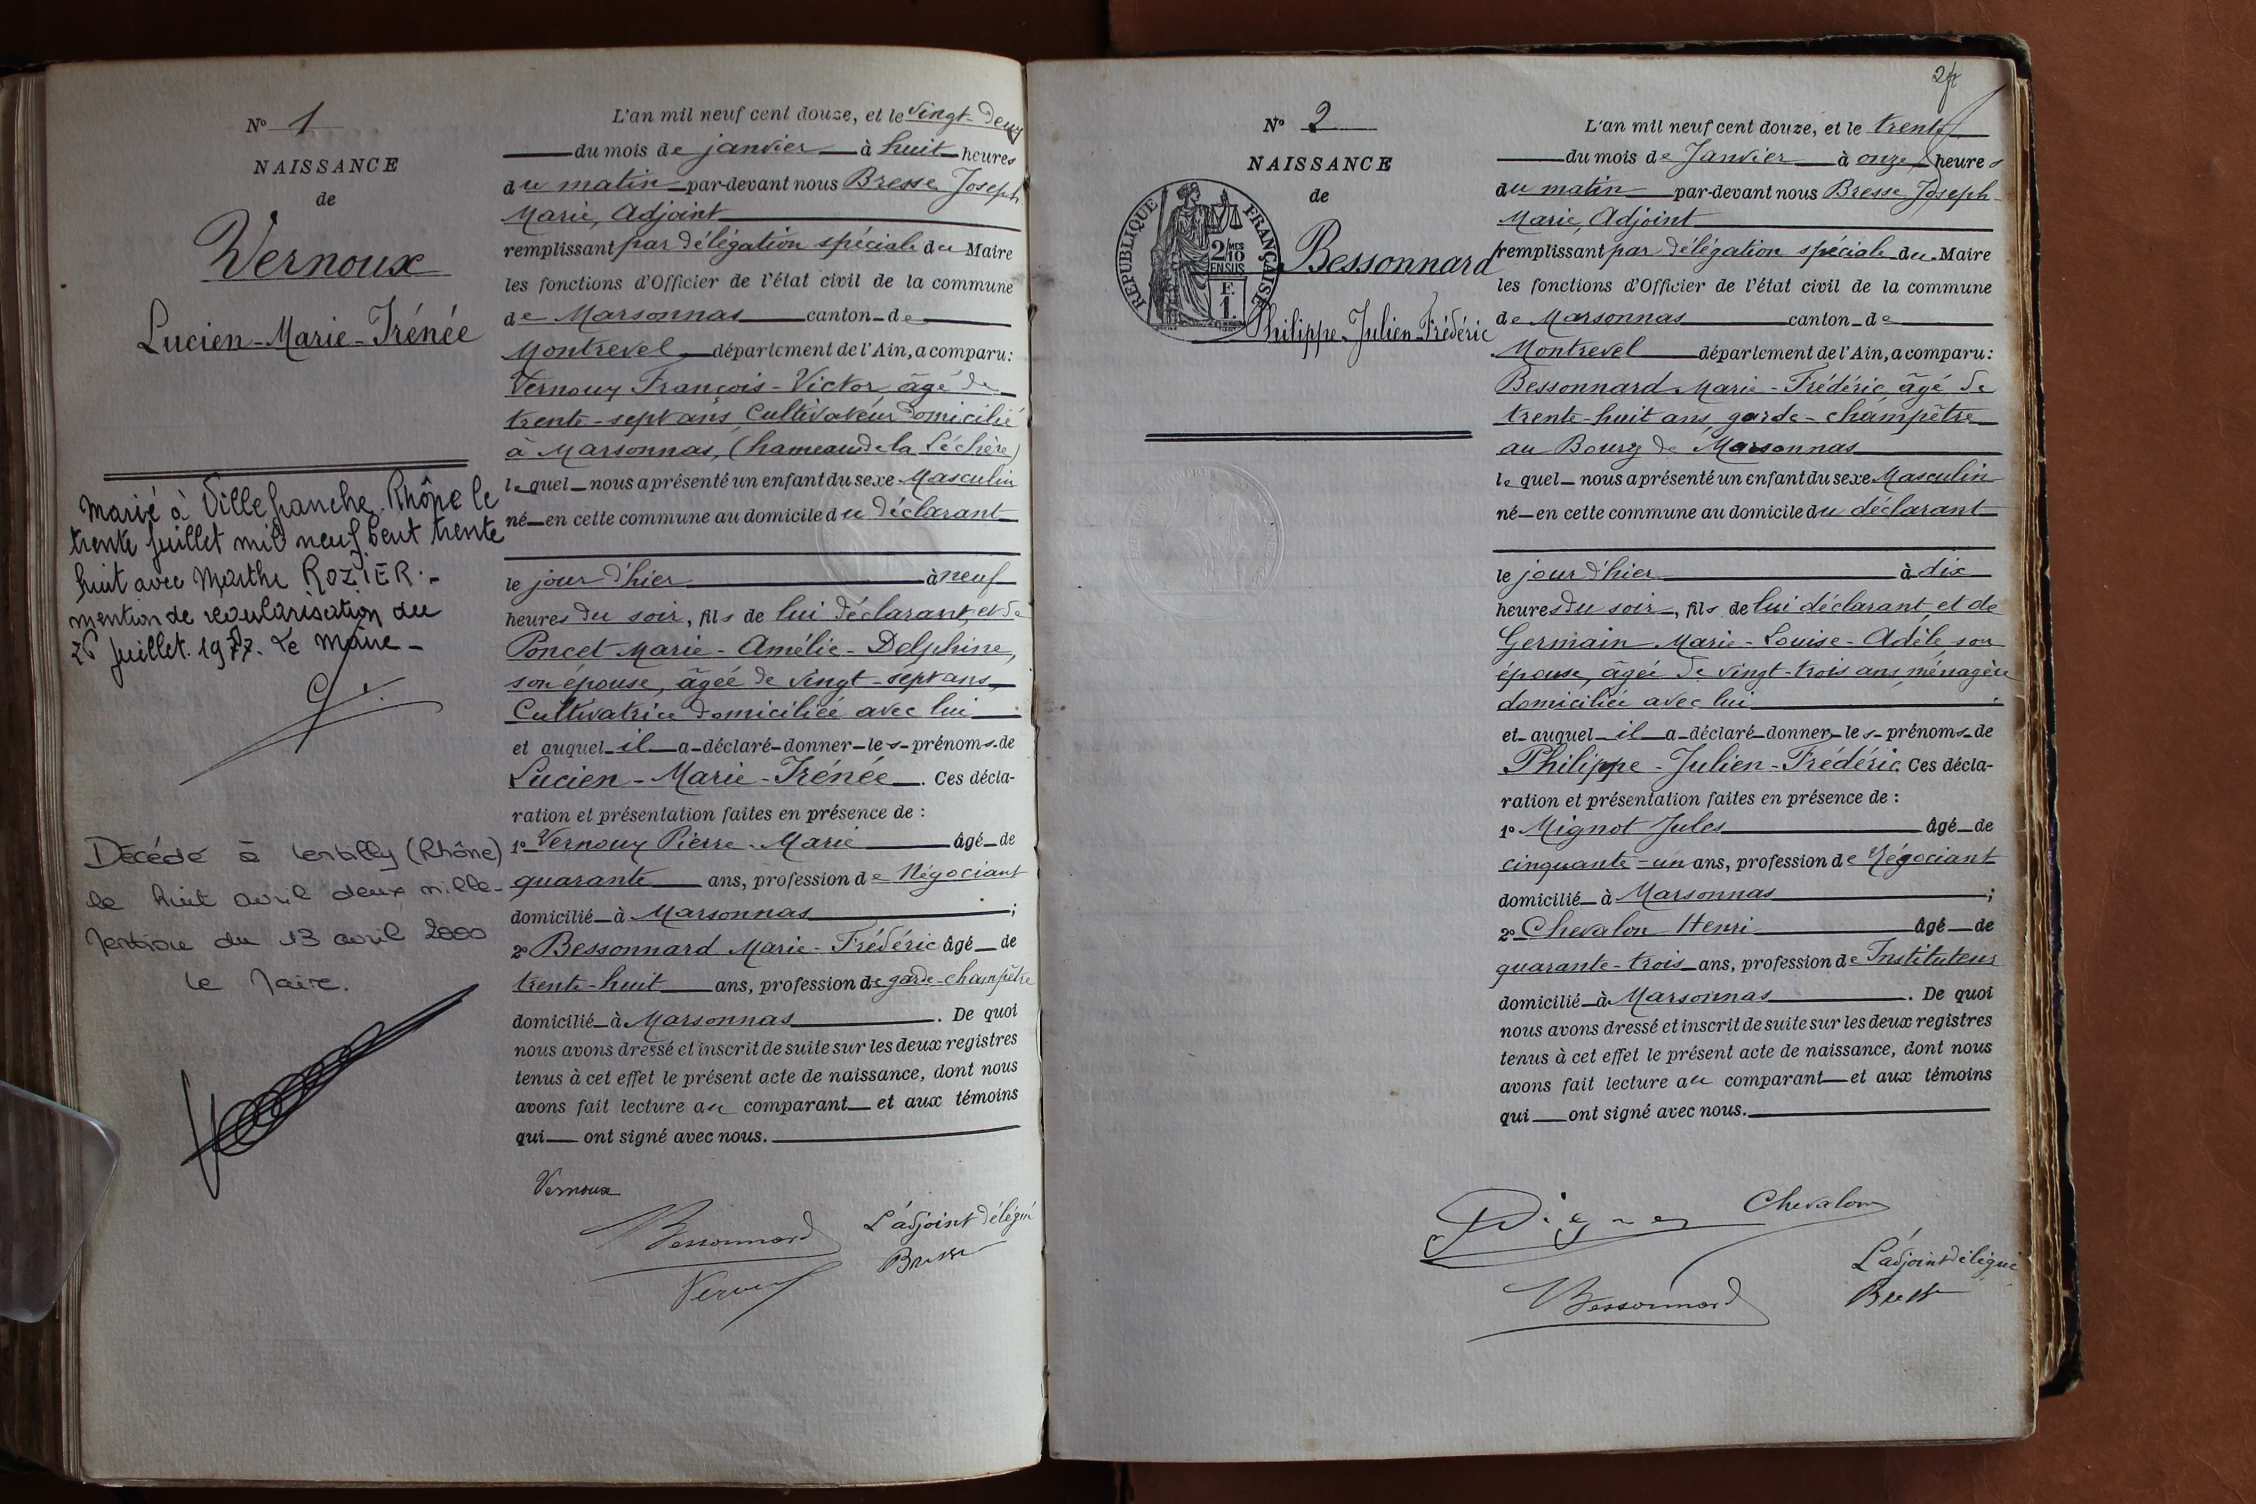 N° 1
NAISSANCE
de
Vernoux
Lucien-Marie-Irénée
Marié à Villefranche Rhône le
trente juillet mil neuf cent trente
huit avec Marthe ROZIER.-
mention de régularisation du
26 juillet 1977. Le Maire -
Décédé à Lentilly (Rhône)
le huit avril deux mille-
Mention du 13 avril 2000
Le Maire.
L'an mil neuf cent douze, et le vingt-deux
du mois de janvier à huit heures
du matin par-devant nous Bresse Joseph
Marie, Adjoint
remplissant par délégation spéciale du Maire
les fonctions d'Officier de l'état civil de la commune
de Marsonnas canton de
Montrevel département de l'Ain, a comparu:
Vernoux François-Victor, âgé de
trente-sept ans, Cultivateur domicilié
à Marsonnas, (hameau de la Léchère)
lequel nous a présenté un enfant du sexe Masculin
né en cette commune au domicile du déclarant
le jour d'hier à neuf
heures du soir, fils de lui déclarant, et de
Poncet Marie-Amélie-Delphine,
son épouse, âgée de vingt-sept ans,
Cultivatrice domiciliée avec lui
et auquel il a déclaré donner les prénoms de
Lucien-Marie-Irénée. Ces décla-
ration et présentation faites en présence de :
1° Vernoux Pierre-Marie âgé de
quarante ans, profession de Négociant
domicilié à Marsonnas ;
2° Bessonnard Marie-Frédéric âgé de
trente-huit ans, profession de garde-champêtre
domicilié à Marsonnas. De quoi
nous avons dressé et inscrit de suite sur les deux registres
tenus à cet effet le présent acte de naissance, dont nous
avons fait lecture au comparant et aux témoins
qui ont signé avec nous.
Vernoux
Bessonnard
L'adjoint délégué
Bresse
Vernoux
2f
N° 2
NAISSANCE
de
RÉPUBLIQUE FRANÇAISE
2/10 MES
EN SUS
F.
1
Bessonnard
Philippe-Julien-Frédéric
L'an mil neuf cent douze, et le trente
du mois de Janvier à onze heures
du matin par-devant nous Bresse Joseph
Marie, Adjoint
remplissant par délégation spéciale du Maire
les fonctions d'Officier de l'état civil de la commune
de Marsonnas canton de
Montrevel département de l'Ain, a comparu:
Bessonnard Marie-Frédéric âgé de
trente-huit ans, garde-champêtre
au Bourg de Marsonnas
lequel nous a présenté un enfant du sexe Masculin
né en cette commune au domicile du déclarant
le jour d'hier à dix
heures du soir, fils de lui déclarant, et de
Germain Marie-Louise-Adèle, son
épouse, âgée de vingt-trois ans, ménagère
domiciliée avec lui
et auquel il a déclaré donner les prénoms de
Philippe-Julien-Frédéric. Ces décla-
ration et présentation faites en présence de :
1° Mignot Jules âgé de
cinquante-un ans, profession de Négociant
domicilié à Marsonnas ;
2° Chevalon Henri âgé de
quarante-trois ans, profession de Instituteur
domicilié à Marsonnas. De quoi
nous avons dressé et inscrit de suite sur les deux registres
tenus à cet effet le présent acte de naissance, dont nous
avons fait lecture au comparant et aux témoins
qui ont signé avec nous.
Chevalon
L'adjoint délégué
Bessonnard
Bresse